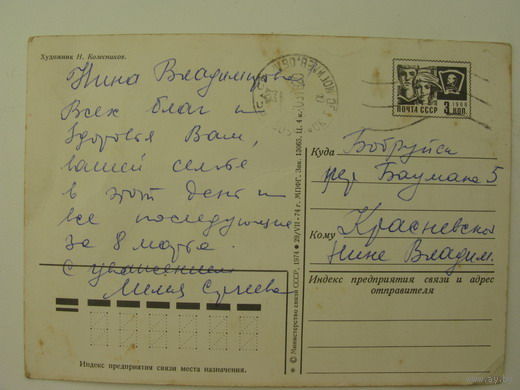 Художник Н. Колесников.
Нина Владимировна
Всех благ и
здоровья Вам,
вашей семье
в этот день и
все последующие
за 8 марта.
С уважением
Сергеева
Индекс предприятия связи места назначения.
© Министерство связи СССР, 1974 29/VII-74 г. МПФГ. Зак. 13063. Ц. 4 к.
ПОЧТА СССР
1968
3 КОП
Куда Бобруйск
пер Баумана 5
Кому Красневской
Нине Владим.
Индекс предприятия связи и адрес
отправителя